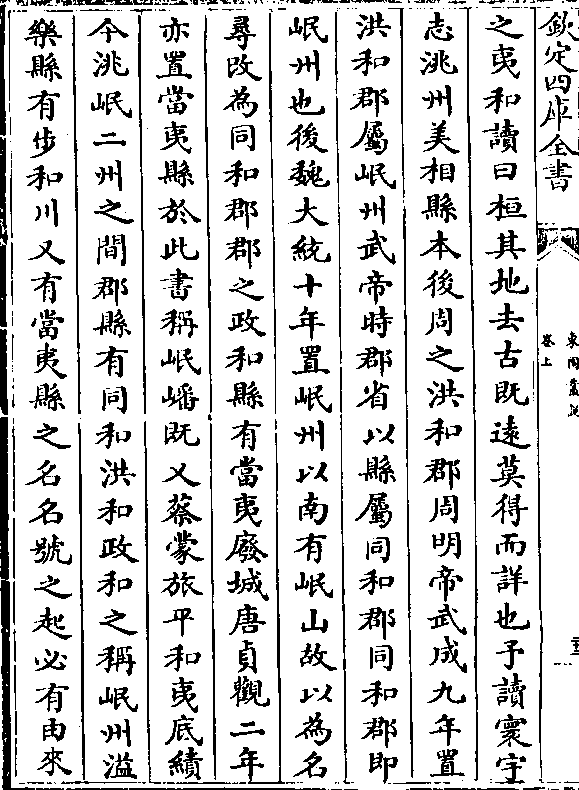 欽定四庫全書
卷上
之夷和讀曰桓其地去古既遠莫得而詳也予讀寰宇
志洮州美相縣本後周之洪和郡周明帝武成九年置
洪和郡屬岷州武帝時郡省以縣屬同和郡同和郡即
岷州也後魏大統十年置岷州以南有岷山故以為名
尋改為同和郡郡之政和縣有當夷廢城唐貞觀二年
亦置當夷縣於此書稱岷嶓既乂蔡蒙旅平和夷底績
今洮岷二州之間郡縣有同和洪和政和之稱岷州溢
樂縣有步和川又有當夷縣之名名號之起必有由來